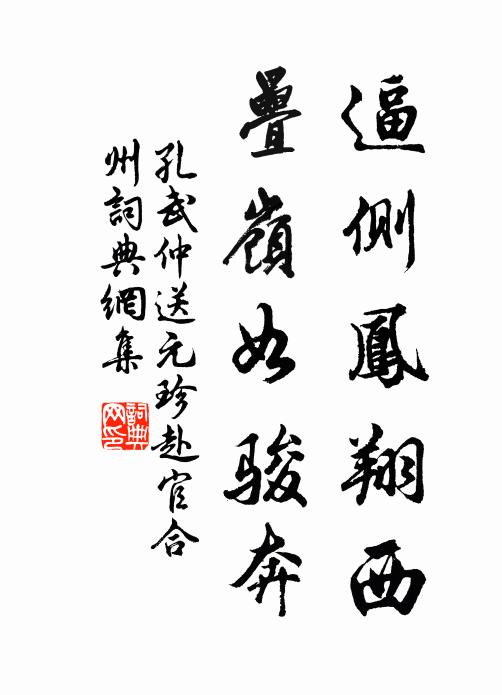 逼側鳳翔西
疊嶺如駿奔
孔武仲送元珍赴官合
州詞典網集
詞典
网印